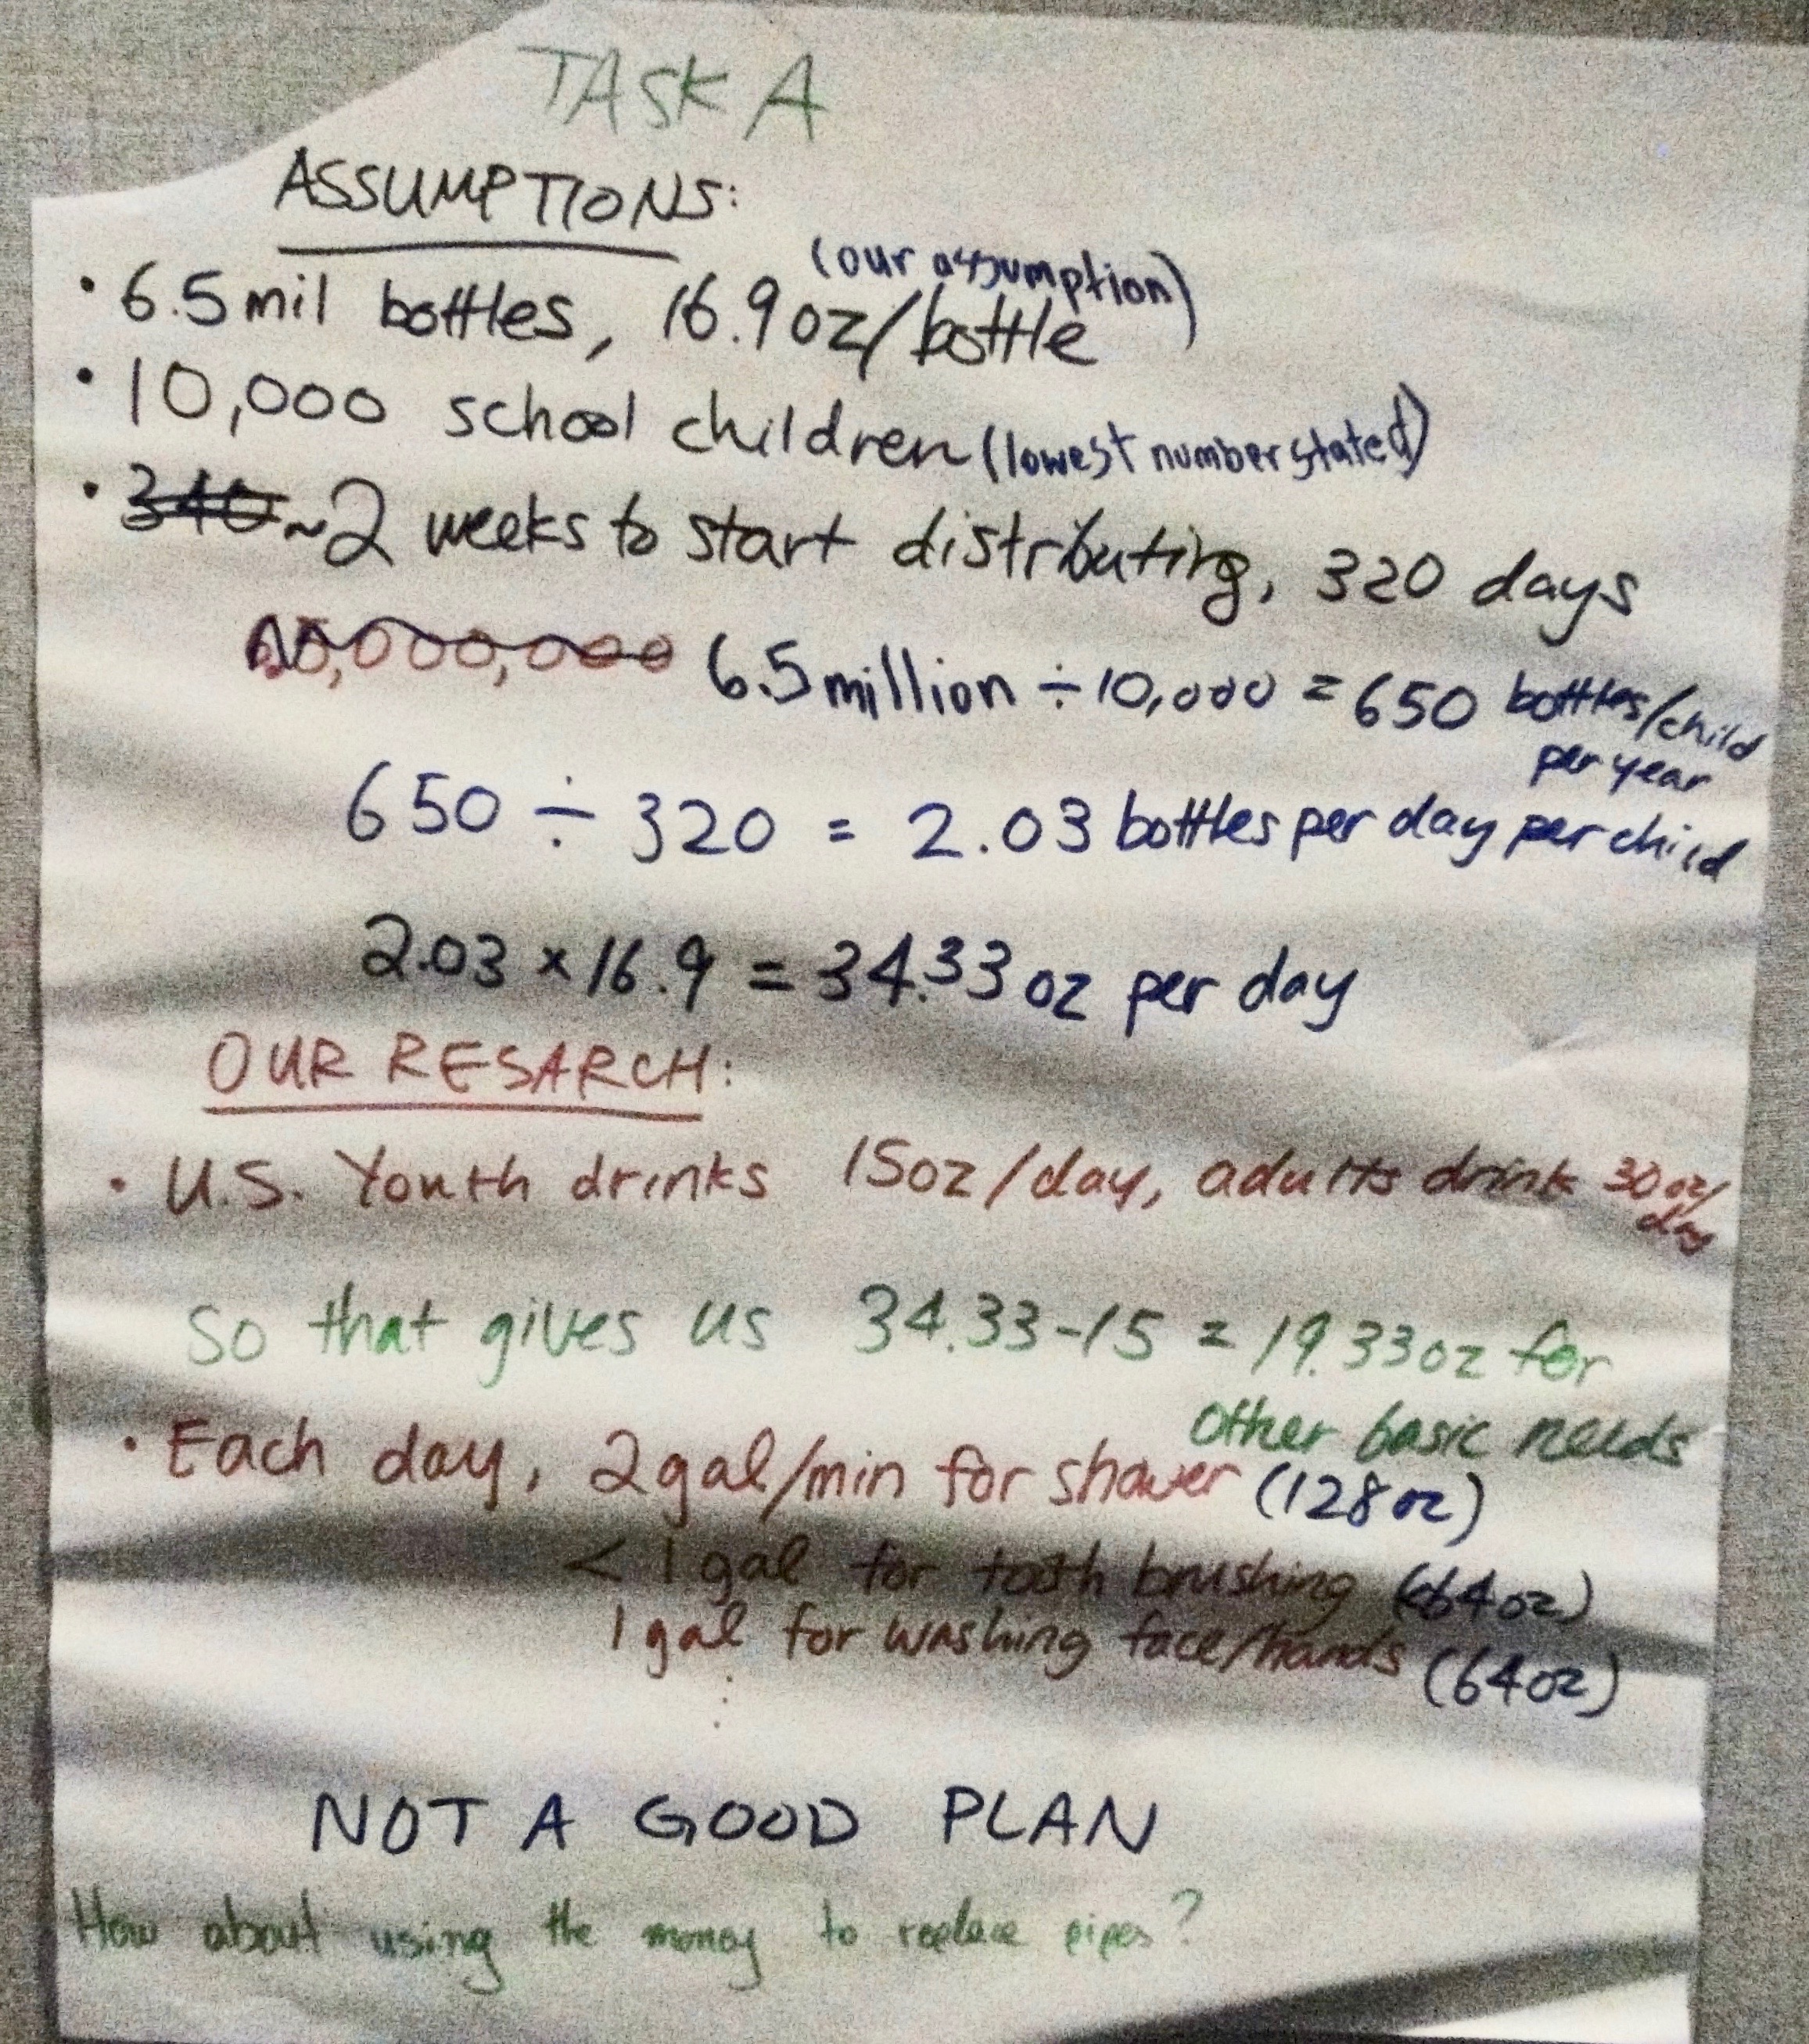 TASK A
ASSUMPTIONS:
(our assumption)
• 6.5mil bottles, 16.9oz/bottle
• 10,000 school children (lowest number stated)
• 340 ~2 weeks to start distributing, 320 days
6.5million ÷ 10,000 = 650 bottles/child
per year
650 ÷ 320 = 2.03 bottles per day per child
2.03 × 16.9 = 34.33 oz per day
OUR RESARCH:
• U.S. Youth drinks 15oz/day, adults drink 30oz/
day
So that gives us 34.33-15 = 19.33oz for
other basic needs
• Each day, 2gal/min for shower (128oz)
< 1 gal for tooth brushing (<64oz)
1 gal for washing face/hands (64oz)
NOT A GOOD PLAN
How about using the money to replace pipes?